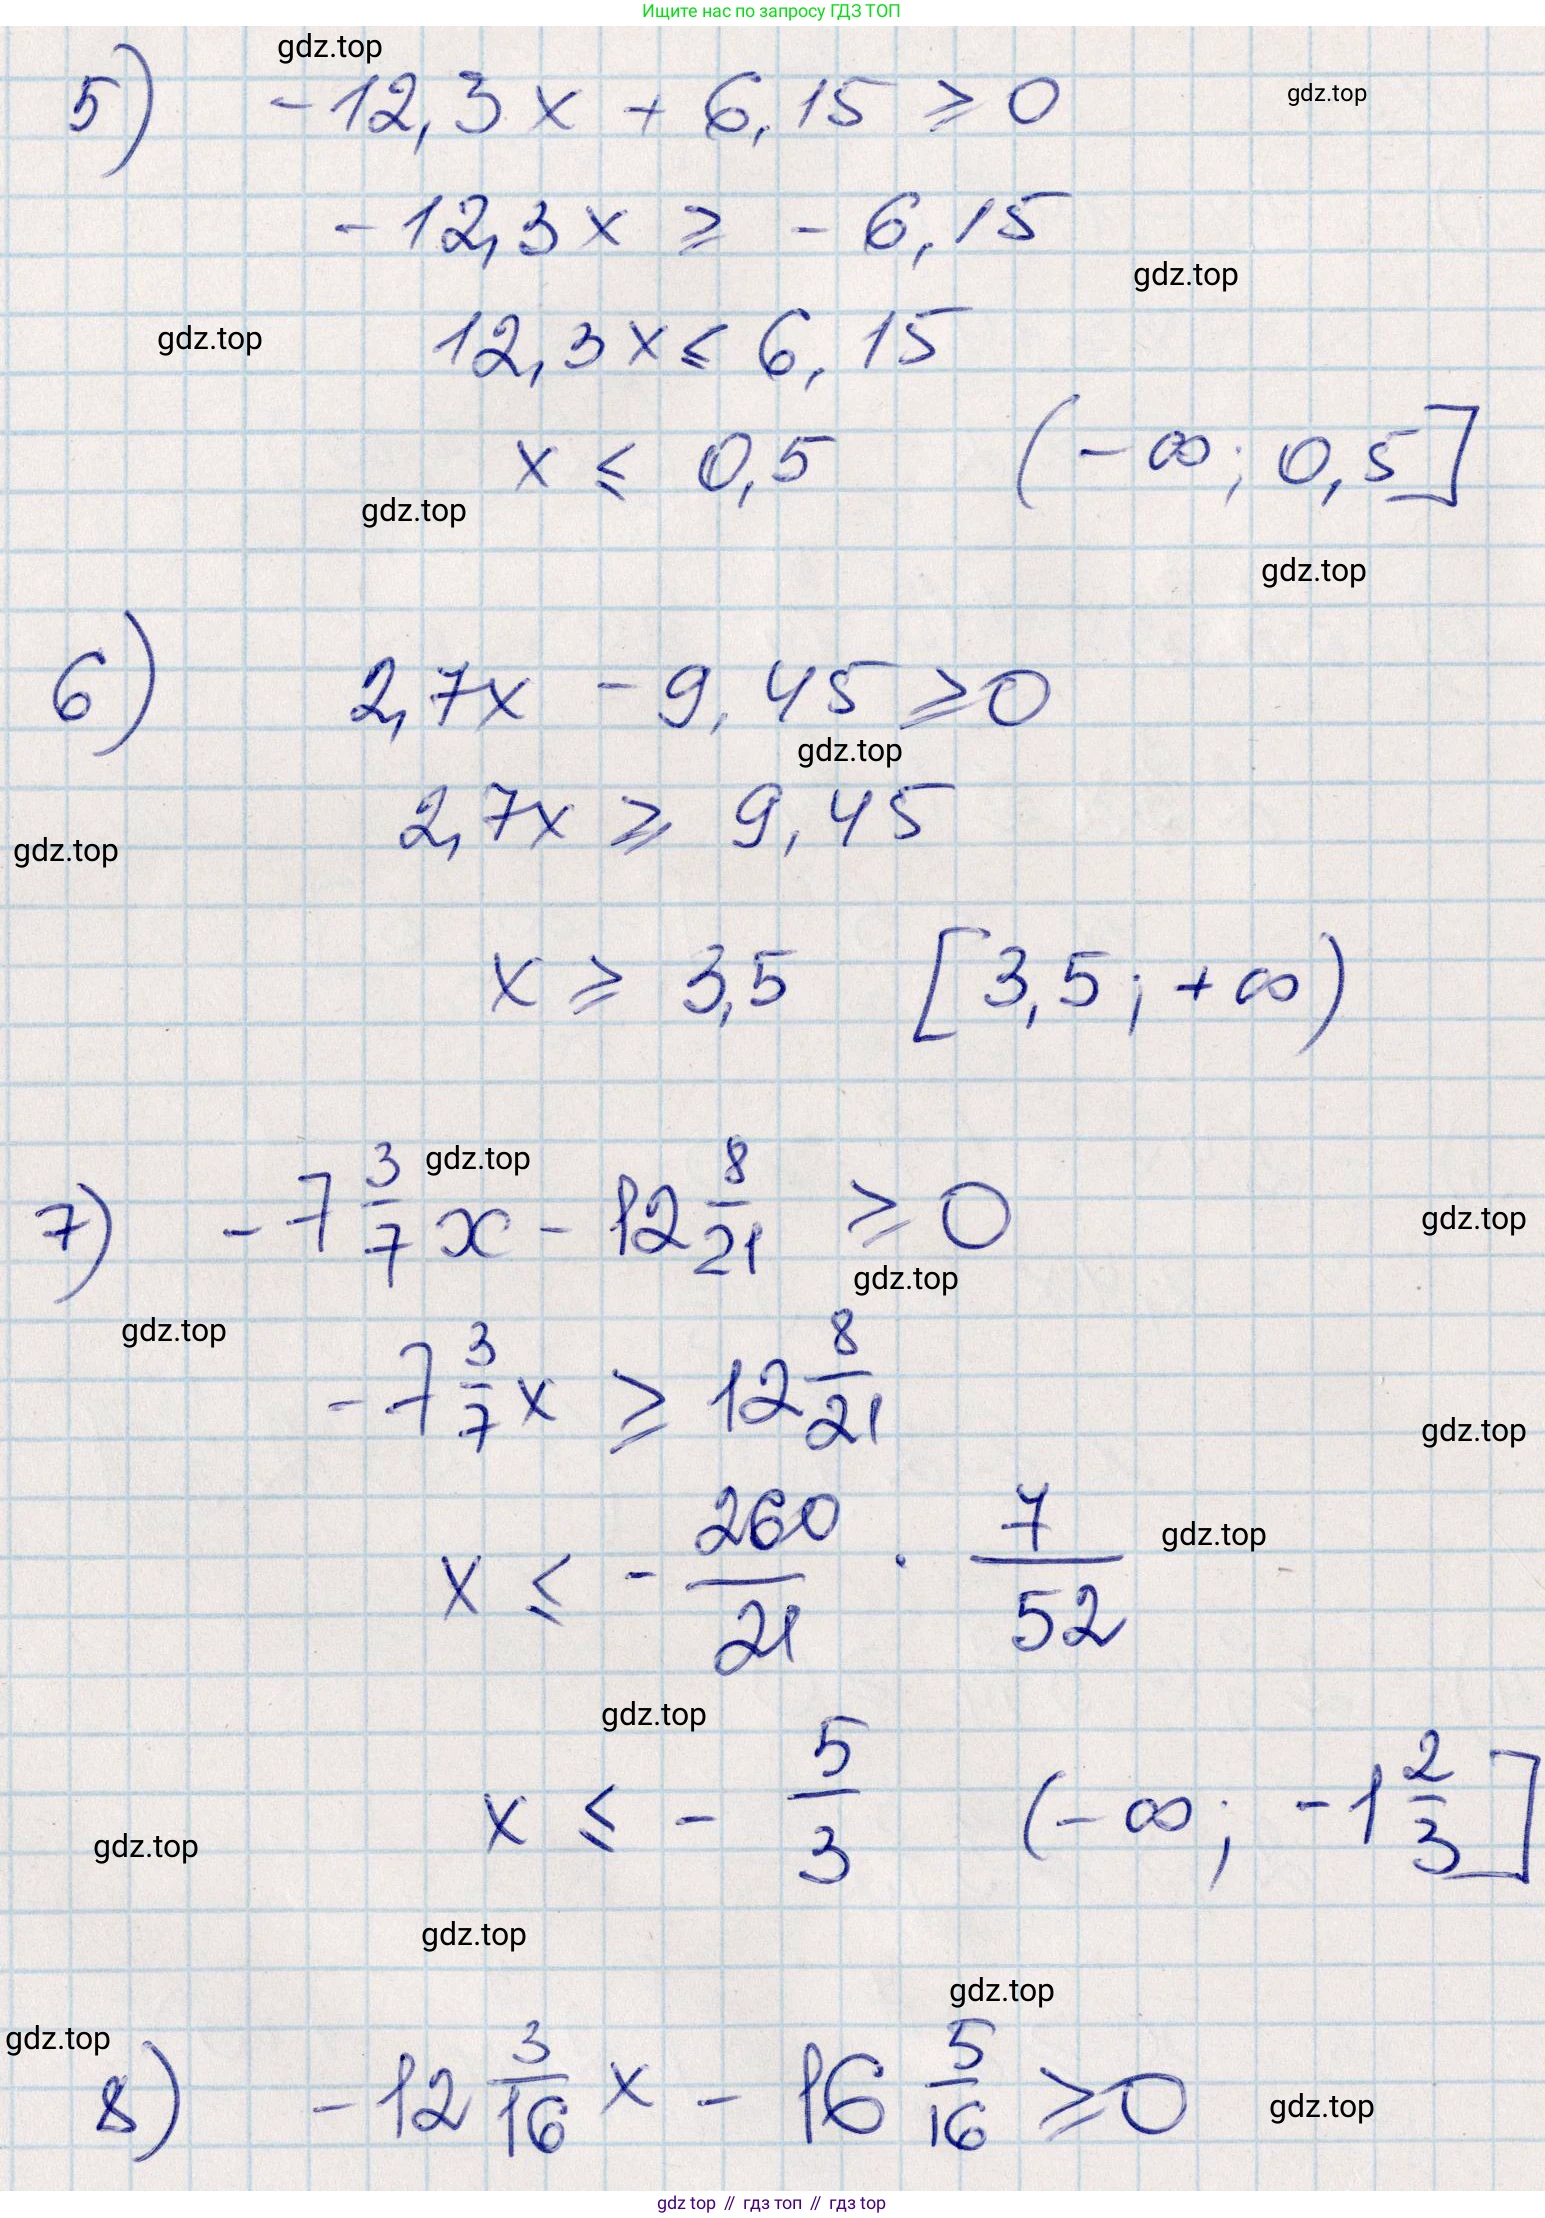 Ищите нас по запросу ГДЗ ТОП
gdz.top
5) -12,3x + 6,15 ⩾ 0
gdz.top
-12,3x ⩾ -6,15
gdz.top
gdz.top
12,3x ⩽ 6,15
x ⩽ 0,5 (-∞; 0,5]
gdz.top
gdz.top
6) 2,7x - 9,45 ⩾ 0
gdz.top
2,7x ⩾ 9,45
gdz.top
x ⩾ 3,5 [3,5; +∞)
gdz.top
7) -7 3/7 x - 12 8/21 ⩾ 0
gdz.top
gdz.top
gdz.top
-7 3/7 x ⩾ 12 8/21
gdz.top
x ⩽ - 260/21 · 7/52
gdz.top
gdz.top
x ⩽ - 5/3 (-∞; -1 2/3]
gdz.top
gdz.top
gdz.top
gdz.top
8) -12 3/16 x - 16 5/16 ⩾ 0
gdz.top
gdz top // гдз топ // gdz top